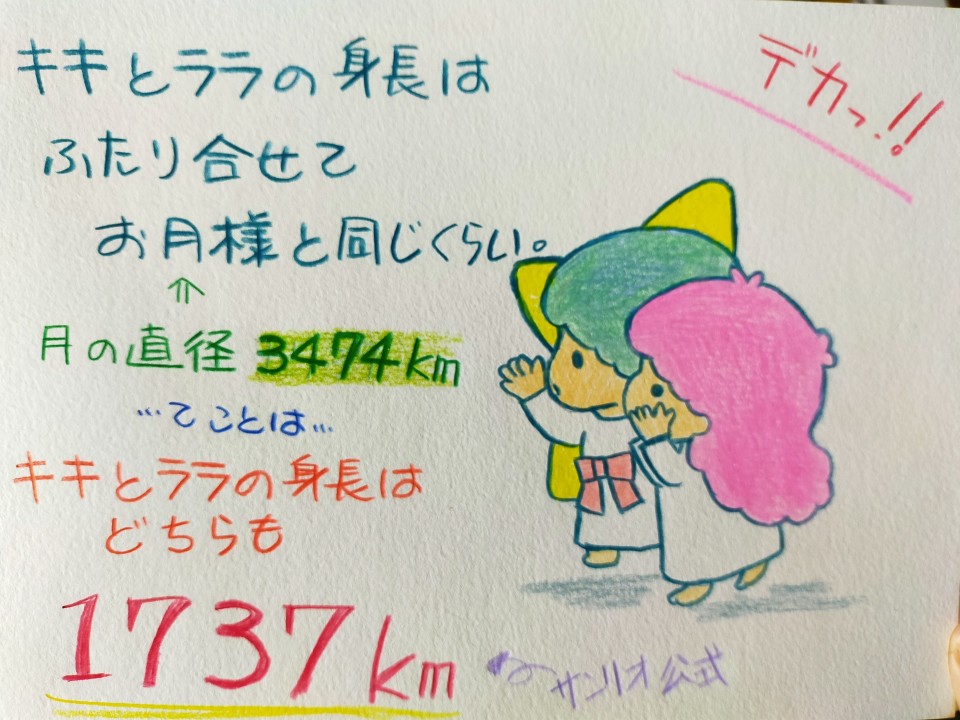 キキとララの身長は
ふたり合せて
お月様と同じくらい。
⇑
月の直径 3474km
…てことは…
キキとララの身長は
どちらも
1737km
デカっ!!
サンリオ公式